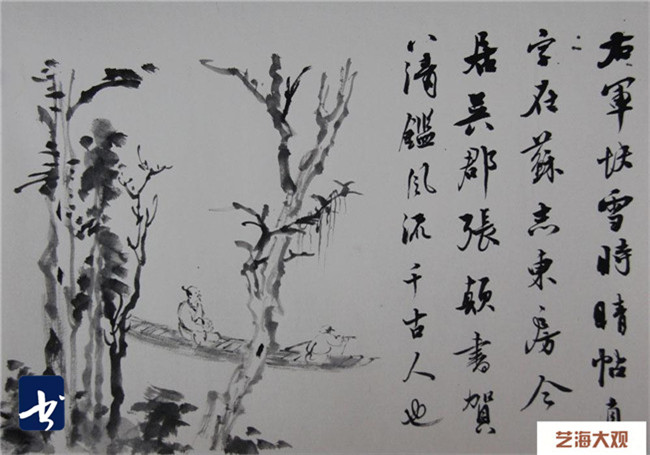 右軍快雪時晴帖
字在蘇志東房今
居吳郡張顛書賀
八清鑑風流千古人也
书
艺海大观